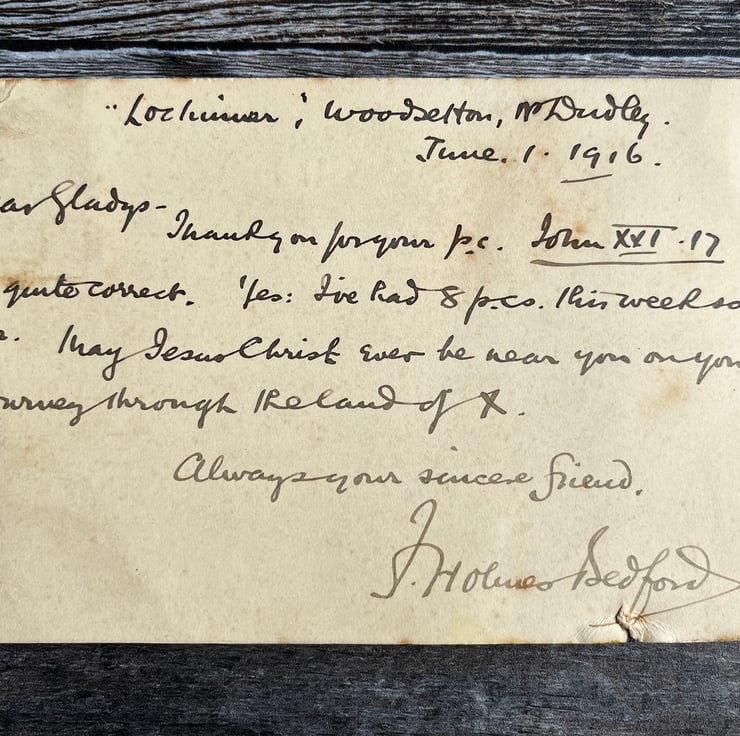 "Lochinvar", Woodsetton, Nr Dudley.
June. 1. 1916.
ar Gladys-
Thank you for your p.c. John XXI.17
quite correct. Yes: I've had 8 p.cs. this week so
r. May Jesus Christ ever be near you on you
urney through the land of X.
Always your sincere friend,
J. Holmes Bedford